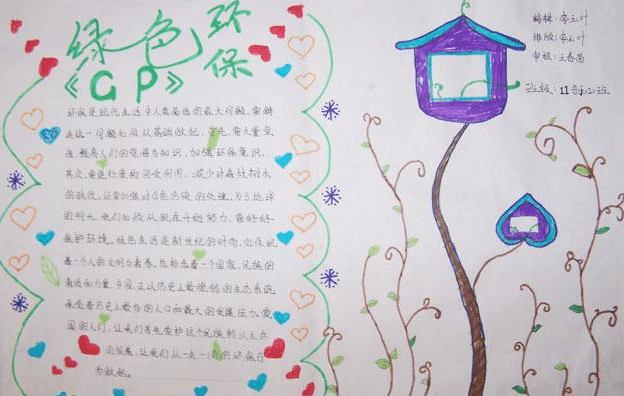 绿色环保
《GP》
编辑:
排版:
审核:王春苗
班级:11
环保是现代生活中人类面临的最大问题,要解
决这一问题必须从基础做起,首先,要大量宣
传,提高人们的觉悟与知识,加强环保意识,
其次,要进行废物回收利用,减少对森林树木
的砍伐,还要加强对白色污染的处理,为了地球
的明天,我们必须从现在开始努力,要好好
保护环境,绿色生活是新世纪的时尚,它体现
着一个人的文明与素养,也标志着一个国家、民族的
素质和力量,中国,正以历史上最脆弱的生态系统,
承受着历史上最多的人口和最大的发展压力,爱
国的人们,让我们首先爱护这个民族赖以生存
的家园,让我们从一点一滴的环保行
为做起。